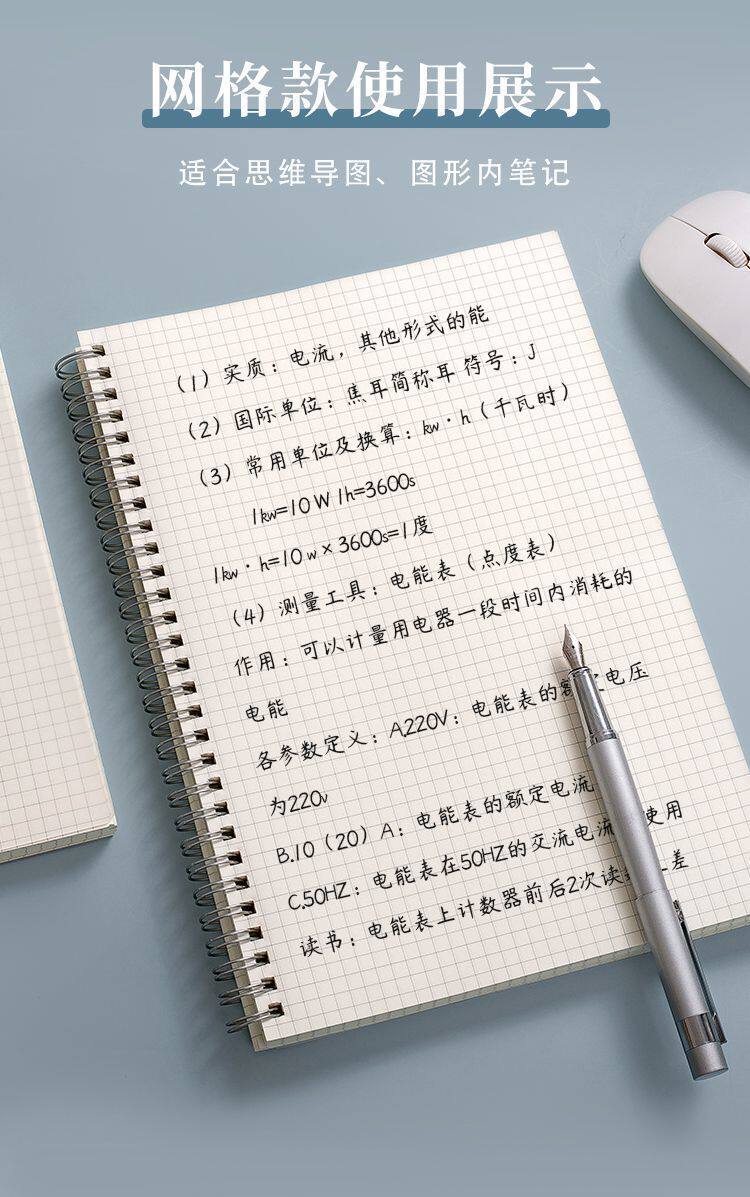 网格款使用展示
适合思维导图、图形内笔记
（1）实质：电流，其他形式的能
（2）国际单位：焦耳简称耳 符号：J
（3）常用单位及换算：kw·h（千瓦时）
1kw=10 W 1h=3600s
1kw·h=10 w×3600s=1度
（4）测量工具：电能表（点度表）
作用：可以计量用电器一段时间内消耗的
电能
各参数定义：A.220V：电能表的额定电压
为220v
B.10（20）A：电能表的额定电流
C.50HZ：电能表在50HZ的交流电流 使用
读书：电能表上计数器前后2次读 差